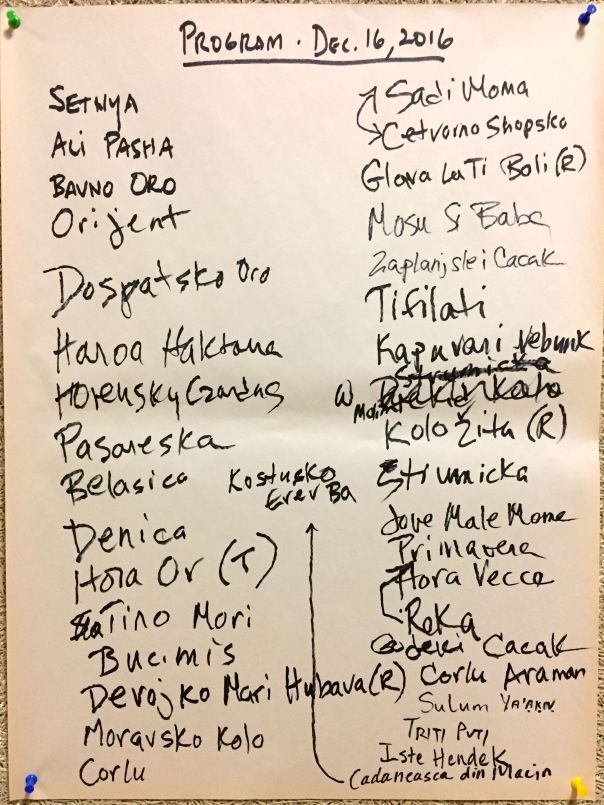 PROGRAM · DEC. 16, 2016
SETNYA
ALI PASHA
BAVNO ORO
Orijent
Dospatsko Oro
Haroa Haktana
Horehsky Czardas
Pasareska
Belasica
Kostursko
Erev Ba
Denica
Hora Or (T)
Tino Mori
Bucimis
Devojko Mari Hubava (R)
Moravsko Kolo
Corlu
Sadi Moma
Cetvorno Shopsko
Glava La Ti Boli (R)
Mosu Si Baba
Zaplanjski Cacak
Tifilati
Kapuvari Verbunk
Strumicka
Kolo
Kolo Žita (R)
Strumicka
Jove Male Mome
Primavera
Hora Veche
Reka
Cacak
Corlu Araman
Sulum YA'AKOV
TRITI PUTI
Iste Hendek
Cadaneasca din Macin